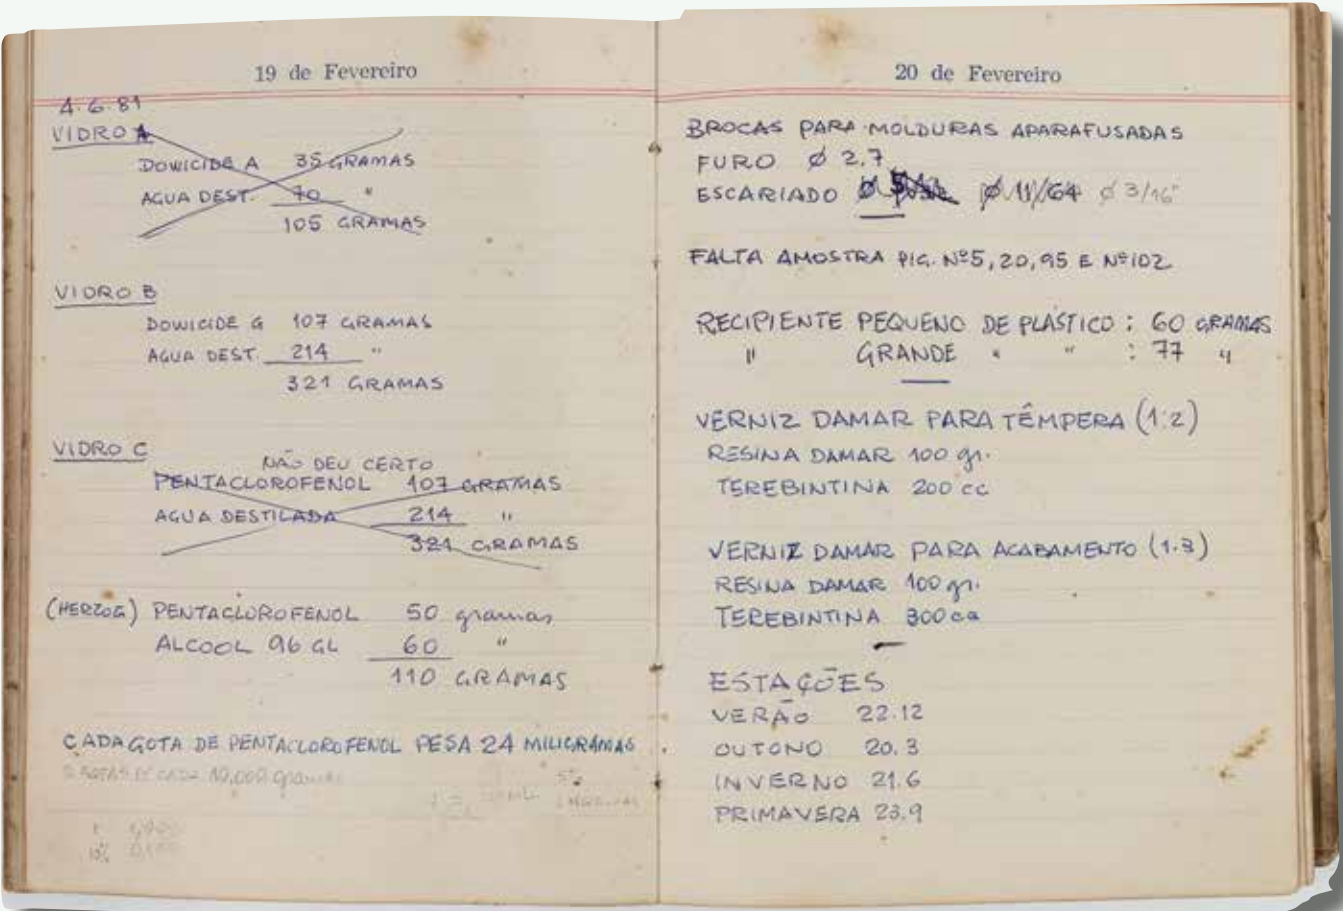 19 de Fevereiro
4.6.81
VIDRO A
DOWICIDE A 35 GRAMAS
AGUA DEST. 70 "
105 GRAMAS
VIDRO B
DOWICIDE G 107 GRAMAS
AGUA DEST. 214 "
321 GRAMAS
VIDRO C
NÃO DEU CERTO
PENTACLOROFENOL 107 GRAMAS
AGUA DESTILADA 214 "
321 GRAMAS
(HERZOG) PENTACLOROFENOL 50 gramas
ALCOOL 96 GL 60 "
110 GRAMAS
CADA GOTA DE PENTACLOROFENOL PESA 24 MILIGRAMAS
CADA 10.000 gramas
20 de Fevereiro
BROCAS PARA MOLDURAS APARAFUSADAS
FURO Ø 2.7
ESCARIADO Ø Ø 11/64 Ø 3/16"
FALTA AMOSTRA PIG. Nº5, 20, 95 E Nº102
RECIPIENTE PEQUENO DE PLÁSTICO : 60 GRAMAS
" GRANDE " " : 77 "
VERNIZ DAMAR PARA TÊMPERA (1:2)
RESINA DAMAR 100 gr.
TEREBINTINA 200 cc
VERNIZ DAMAR PARA ACABAMENTO (1.3)
RESINA DAMAR 100 gr.
TEREBINTINA 300 cc
ESTAÇÕES
VERÃO 22.12
OUTONO 20.3
INVERNO 21.6
PRIMAVERA 23.9